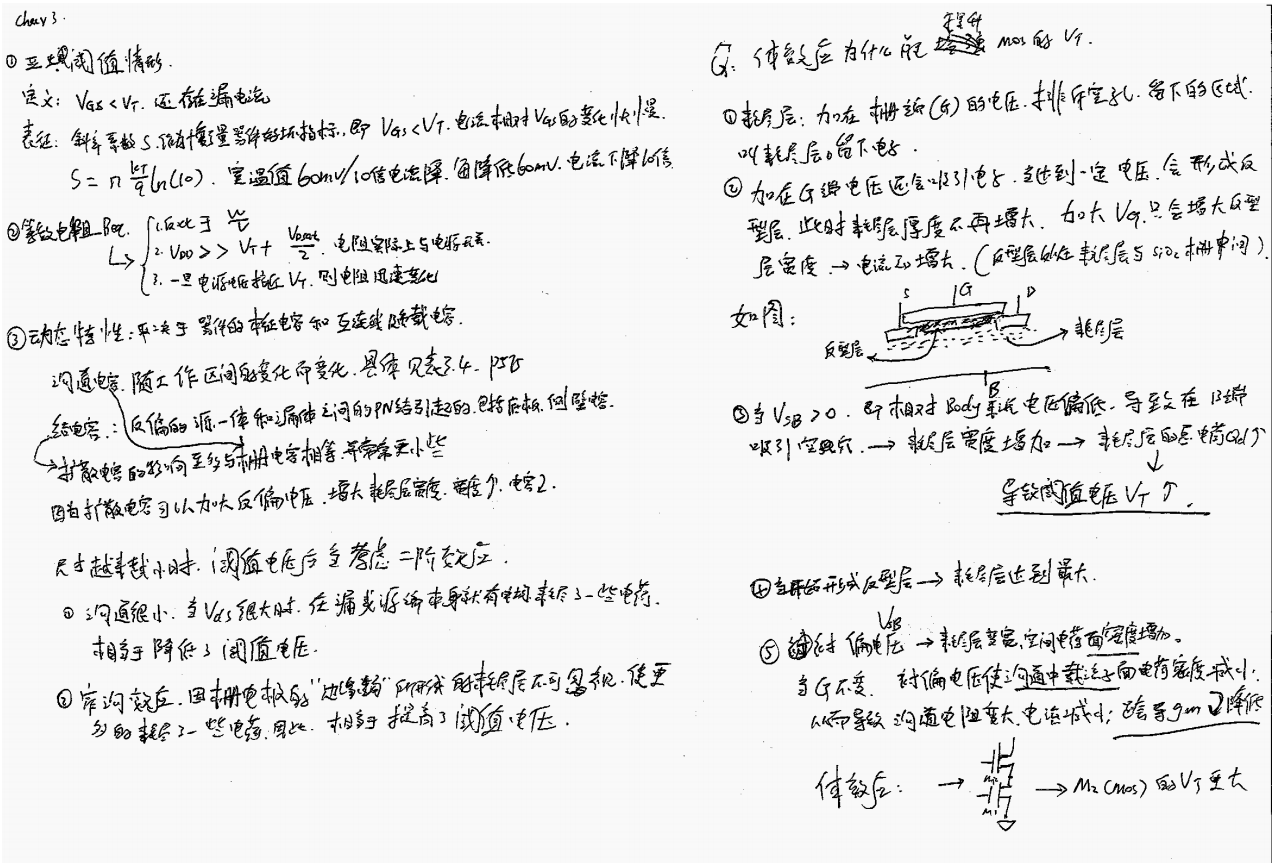 Chap 3.
① 亚阈值情形.
定义: VGS < VT. 还存在漏电流
表征: 斜率系数 S. 衡量器件的指标, 即 VGS < VT. 电流相对 VGS 的变化快慢.
S = n kT/q ln(10). 室温值 60mV/10倍电流降. 每降低 60mV. 电流下降10倍
② 等效电阻 Req.
1. 反比于 W/L
2. VDD >> VT + Vdsat/2. 电阻实际上与电源无关.
3. 一旦电源电压接近 VT. 则电阻迅速变化
③ 动态特性: 取决于 器件的本征电容和 互连线 负载电容.
沟道电容. 随工作区间的变化而变化. 具体见表3.4.
结电容: 反偏的源-体和漏体之间的PN结引起的. 包括底板, 侧壁电容.
扩散电容的影响至多与栅电容相等. 并常常更小些
因为扩散电容可以加大反偏电压. 增大耗尽层宽度. 宽度↑. 电容↓.
尺寸越来越小时. 阈值电压应考虑二阶效应.
① 沟道很小. 当 Vds 很大时. 在漏或源端本身就有电场. 耗尽了一些电荷.
相当于降低了阈值电压.
② 窄沟效应. 因栅电极的"边缘" 所形成的耗尽层不可忽视. 使更
多的耗尽了一些电荷. 因此. 相当于提高了阈值电压.
Q: 体效应为什么能 提升 mos 的 VT.
① 耗尽层: 加在栅端(G)的电压. 排斥空穴. 留下的区域.
叫耗尽层. 留下电子.
② 加在G端电压还会吸引电子. 当达到一定电压. 会形成反
型层. 此时耗尽层厚度不再增大. 加大 VG. 只会增大反型
层宽度 → 电流增大. (反型层处在耗尽层与 SiO2 栅中间)
如图:
S G D
反型层
耗尽层
B
③ 当 VSB > 0. 即相对 Body 电压偏低. 导致在B端
吸引空穴. → 耗尽层宽度增加 → 耗尽层的电荷 Qd ↑
导致阈值电压 VT ↑.
④ 当开始形成反型层 → 耗尽层达到最大.
⑤ 衬偏电压 VSB → 耗尽层变宽, 空间电荷面密度增加。
当 G 不变. 衬偏电压使沟道中载流子面电荷密度减小.
从而导致沟道电阻变大. 电流减小; 还会导 gm 降低
体效应: →
M2
M1
→ M2 (mos) 的 VT 更大